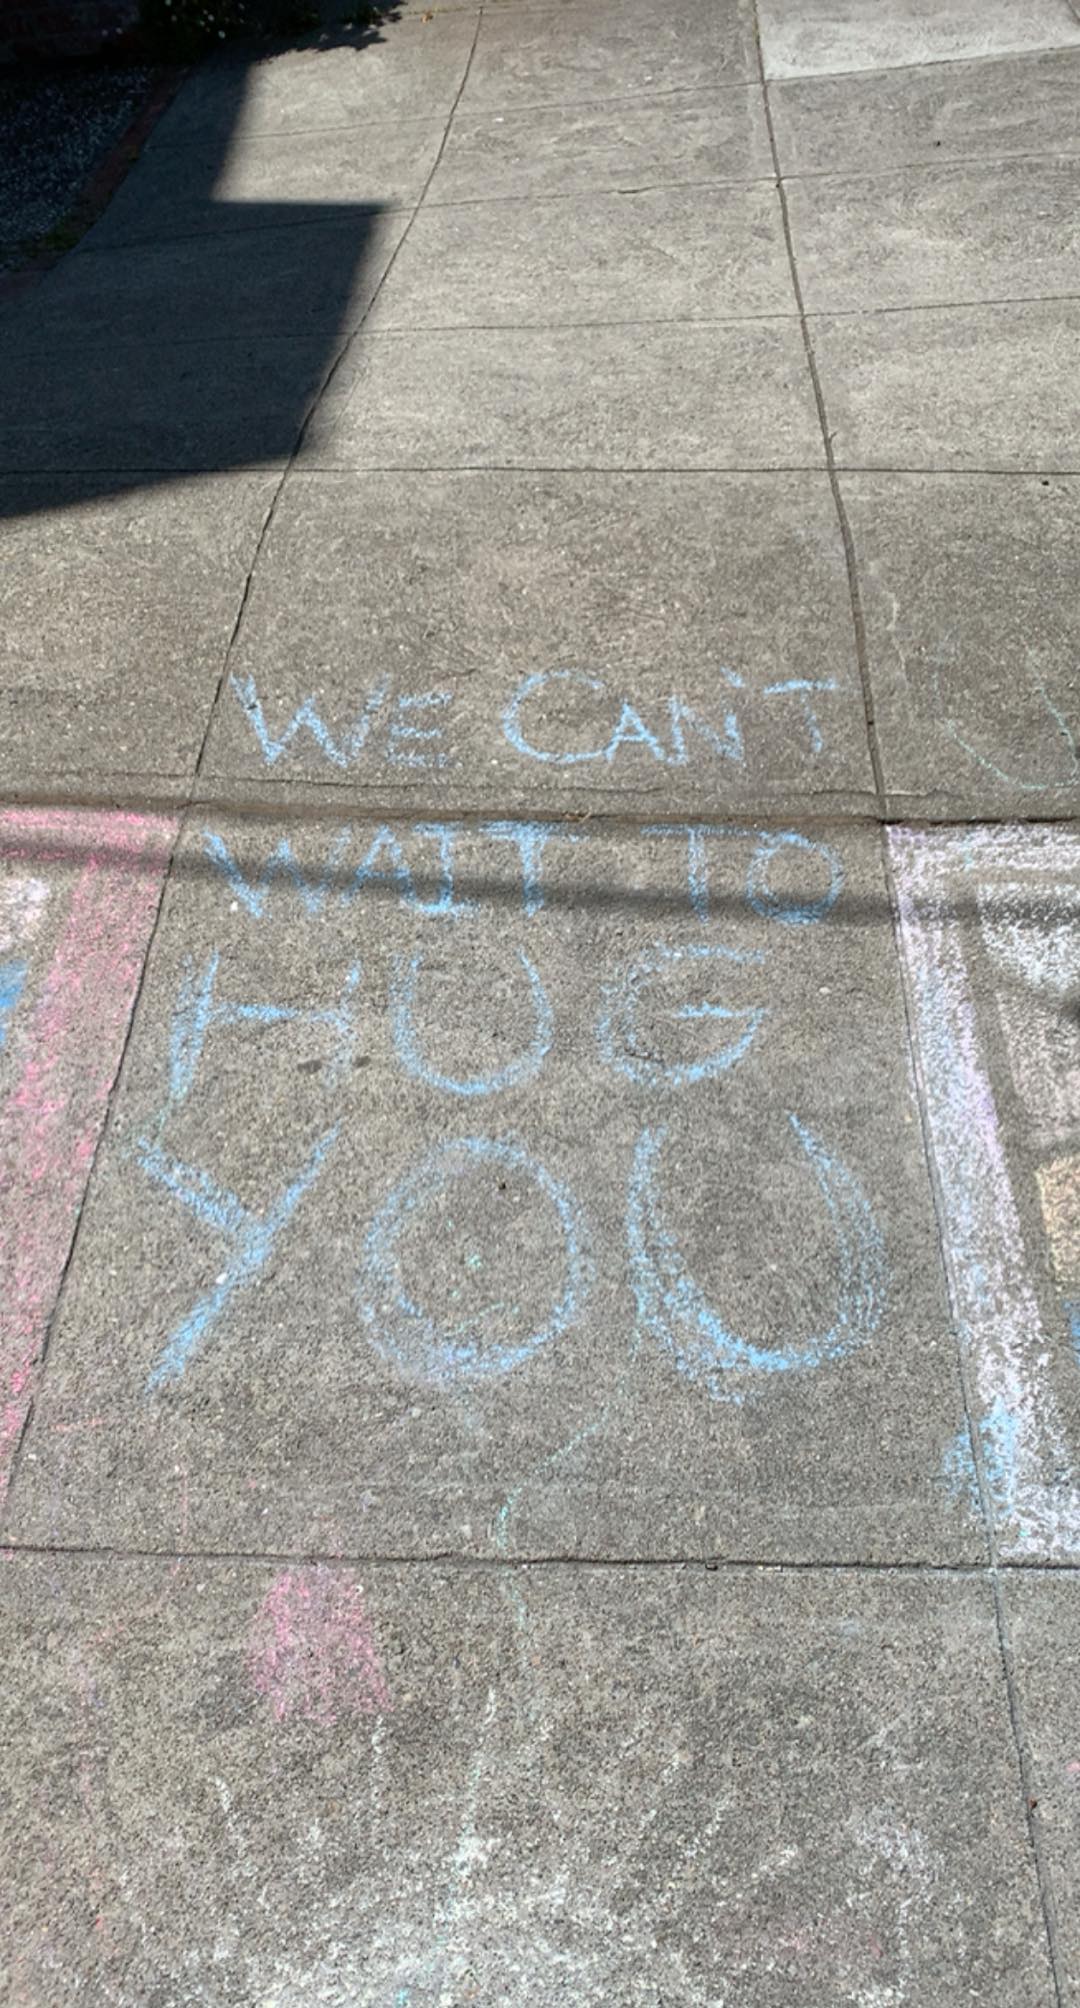 WE CAN'T
WAIT TO
HUG
YOU